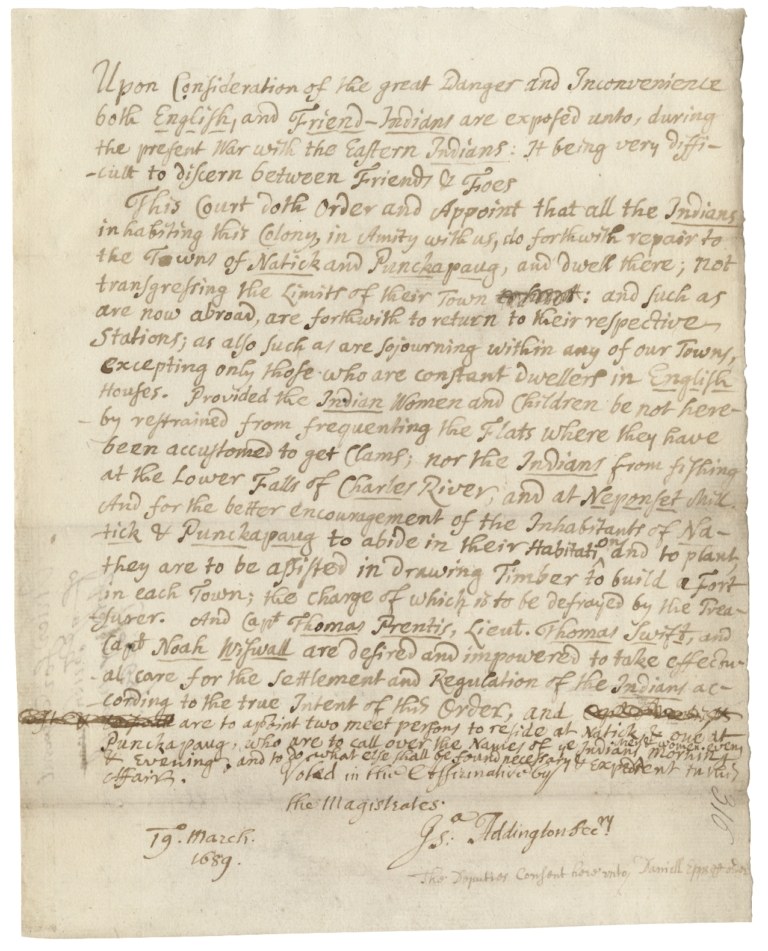 Upon Consideration of the great Danger and Inconvenience
both English, and Friend-Indians are exposed unto, during
the present War with the Eastern Indians: It being very diffi-
-cult to discern between Friends & Foes
This Court doth Order and Appoint that all the Indians
inhabiting this Colony, in Amity with us, do forthwith repair to
the Towns of Natick and Punckapaug, and dwell there; not
transgressing the Limits of their Town : and such as
are now abroad, are forthwith to return to their respective
Stations; as also such as are sojourning within any of our Towns,
excepting only those who are constant dwellers in English
Houses. Provided the Indian Women and Children be not here-
-by restrained from frequenting the Flats where they have
been accustomed to get Clams; nor the Indians from fishing
at the Lower Falls of Charles River, and at Neponset Mill.
And for the better encouragement of the Inhabitants of Na-
-tick & Punckapaug to abide in their Habitation, and to plant,
they are to be assisted in drawing Timber to build a Fort
in each Town; the charge of which is to be defrayed by the Trea-
-surer. And Capt Thomas Prentis, Lieut. Thomas Swift, and
Capt Noah Wiswall are desired and impowered to take effectu-
al care for the settlement and Regulation of the Indians ac-
-cording to the true Intent of this Order, and
are to apoint two meet persons to reside at Natick & one at
Punckapaug, who are to call over the Names of ye Indians men & women every Morning
& Evening, and to do what else shall be found necessary & Expedient in this
Affair. Voted in the Affirmative by
the Magistrates.
Jsa: Addington Secry
19o. March.
1689.
The Deputies Consent hereunto, Daniell
316